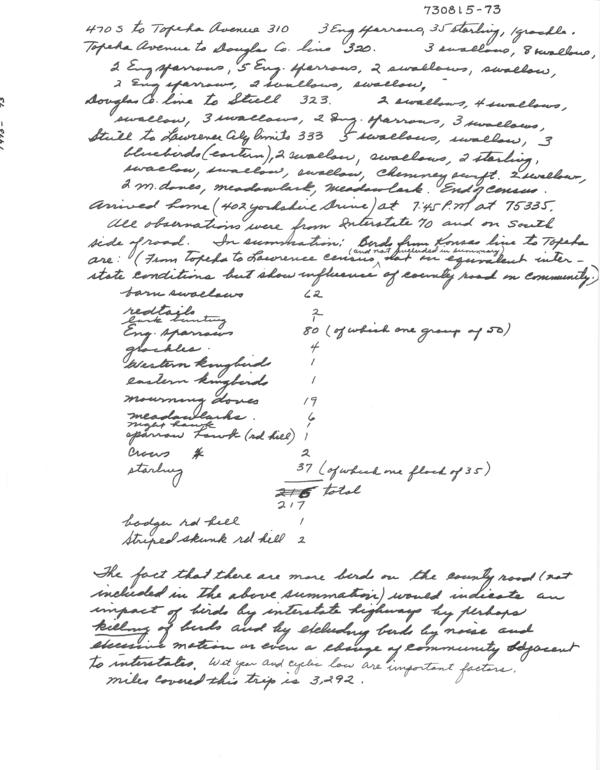 730815-73
470 S to Topeka Avenue 310 3 Eng sparrows, 35 starling, 1 grackle.
Topeka Avenue to Douglas Co. line 320. 3 swallows, 8 swallows,
2 Eng sparrows, 5 Eng. sparrows, 2 swallows, swallow,
2 Eng sparrows, 2 swallows, swallow,
Douglas Co. line to Stull 323. 2 swallows, 4 swallows,
swallow, 3 swallows, 2 Eng. sparrows, 3 swallows,
Stull to Lawrence City limits 333 5 swallows, swallow, 3
bluebirds (eastern), 2 swallow, swallows, 2 starling,
swallow, swallow, swallow, Chemney swift. 2 swallow,
2 m. doves, meadowlark, meadowlark. End of census.
Arrived home (402 yorkshire Drive) at 7:45 P.M at 75335.
All observations were from Interstate 70 and on South
side of road. In summation: Birds from Kansas line to Topeka
are: (From Topeka to Lawrence census (and not included in summary) not on equivalent inter-
state conditions but show influence of county road on community.)
barn swallows 62
redtails 2
lark bunting 1
Eng. sparrows 80 (of which one group of 50)
grackles 4
Western kingbirds 1
eastern kingbirds 1
mourning doves 19
meadowlarks. 6
night hawk 1
sparrow hawk (rd kill) 1
Crows 2
starling 37 (of which one flock of 35)
216 total
217
badger rd kill 1
Striped skunk rd kill 2
The fact that there are more birds on the county road (not
included in the above summation) would indicate an
impact of birds by interstate highways by perhaps
killing of birds and by excluding birds by noise and
excessive motion or even a change of community adjacent
to interstates. Wet year and cyclic low are important factors.
Miles covered this trip is 3,292.